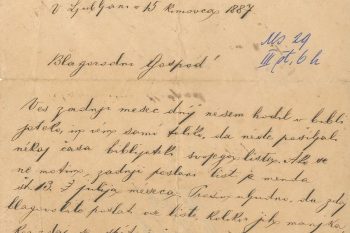 V Ljubljani 13 kimovca 1887
Ms 29
III pt, 6 h
Blagorodni Gospod!
Ves zadnji mesec dnij nesem hodil v bibli-
joteko, in vem samo toliko, da neste pošiljali
nekaj časa biblijoteki svojega lista. Ako se
ne motim, zadnji poslani list je menda
št. 13. 3 julija meseca. Prosim uljudno, da zdaj
blagovolite poslati vse liste, kolikor jih manjka.